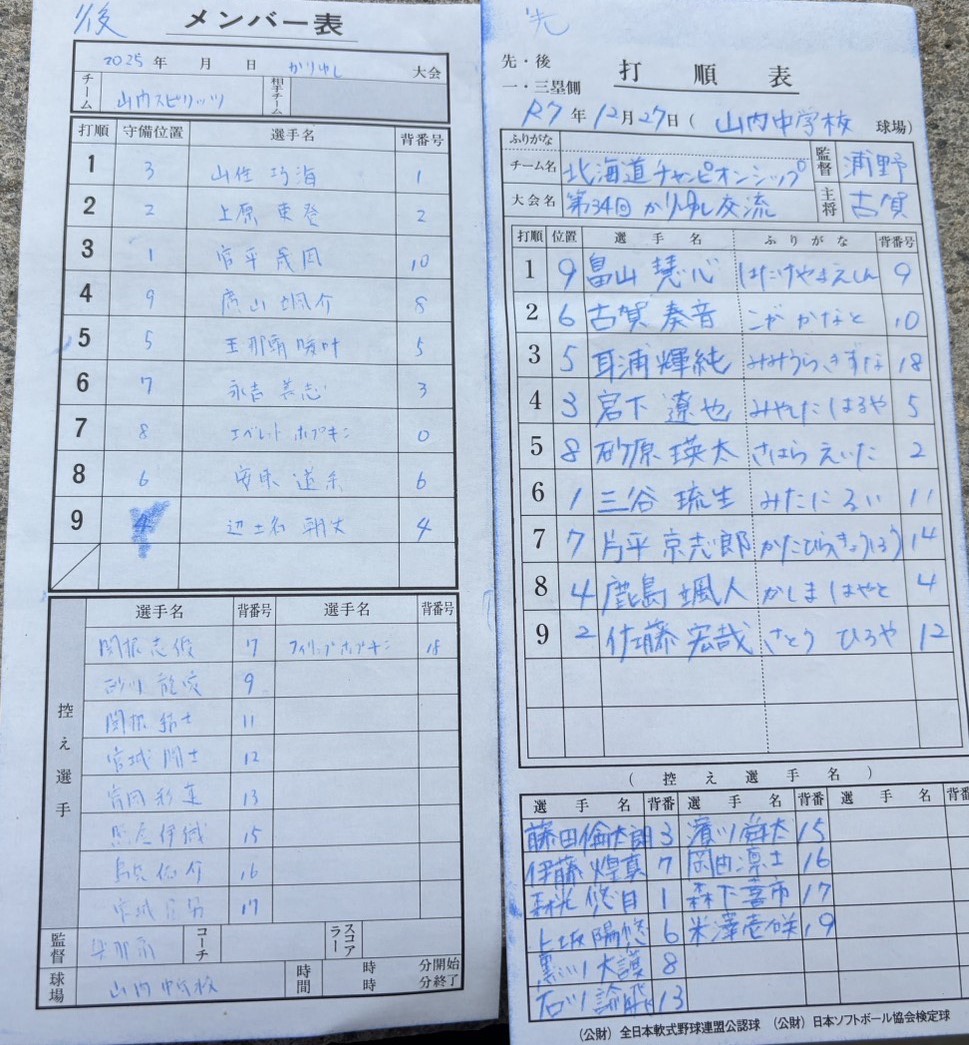 後
メンバー表
2025年 月 日 かりゆし 大会
チーム 山内スピリッツ 相手チーム
打順 守備位置 選手名 背番号
1 3 山住 巧海 1
2 2 上原 1 2
3 1 宮平 10
4 9 颯介 8
5 5 玉那覇 5
6 7 永吉 善志 3
7 8 エベレット ホプキン 0
8 6 6
9 4 辺土名 朝丈 4
選手名 背番号 選手名 背番号
控え選手
関根 志俊 7 フィリップ ホプキン 18
砂川 9
関根 11
宮城 12
宮岡 彩蓮 13
伊織 15
16
宮城 17
監督 コーチ スコアラー
球場 山内中学校 時間 時 分開始
時 分終了
先
先・後
一・三塁側
打順表
R7年12月27日(山内中学校 球場)
ふりがな
チーム名 北海道チャンピオンシップ 監督 浦野
大会名 第34回かりゆし交流 主将 古賀
打順 位置 選手名 ふりがな 背番号
1 9 畠山 慧心 はたけやまえしん 9
2 6 古賀 奏音 こが かなと 10
3 5 耳浦 輝純 みみうら きずな 18
4 3 宮下 遼也 みやした はるや 5
5 8 砂原 瑛太 さはら えいた 2
6 1 三谷 琉生 みたに るい 11
7 7 片平 京志郎 かたひらきょうしろう 14
8 4 鹿島 颯人 かしま はやと 4
9 2 佐藤 宏哉 さとう ひろや 12
(控え選手名)
選手名 背番 選手名 背番 選手名 背番
藤田倫太朗 3 濱川舜太 15
伊藤 煌真 7 岡田凛士 16
森光 悠目 1 森下喜市 17
上坂陽悠 6 米澤壱咲 19
黒川大護 8
石川 13
(公財)全日本軟式野球連盟公認球 (公財)日本ソフトボール協会検定球